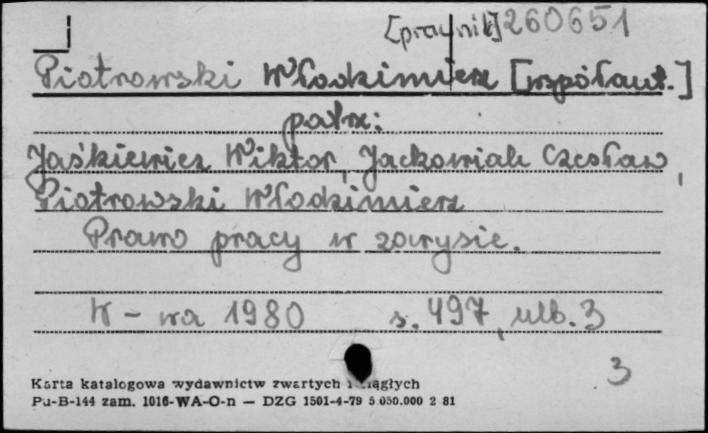 [prawnik] 260651
Piotrowski Włodzimierz [współaut.]
patrz:
Jaśkiewicz Wiktor, Jackowiak Czesław,
Piotrowski Włodzimierz
Prawo pracy w zarysie.
W-wa 1980 s. 497, nlb. 3
3
Karta katalogowa wydawnictw zwartych i ciągłych
Pu-B-144 zam. 1016-WA-O-n — DZG 1501-4-79 5.050.000 2 81